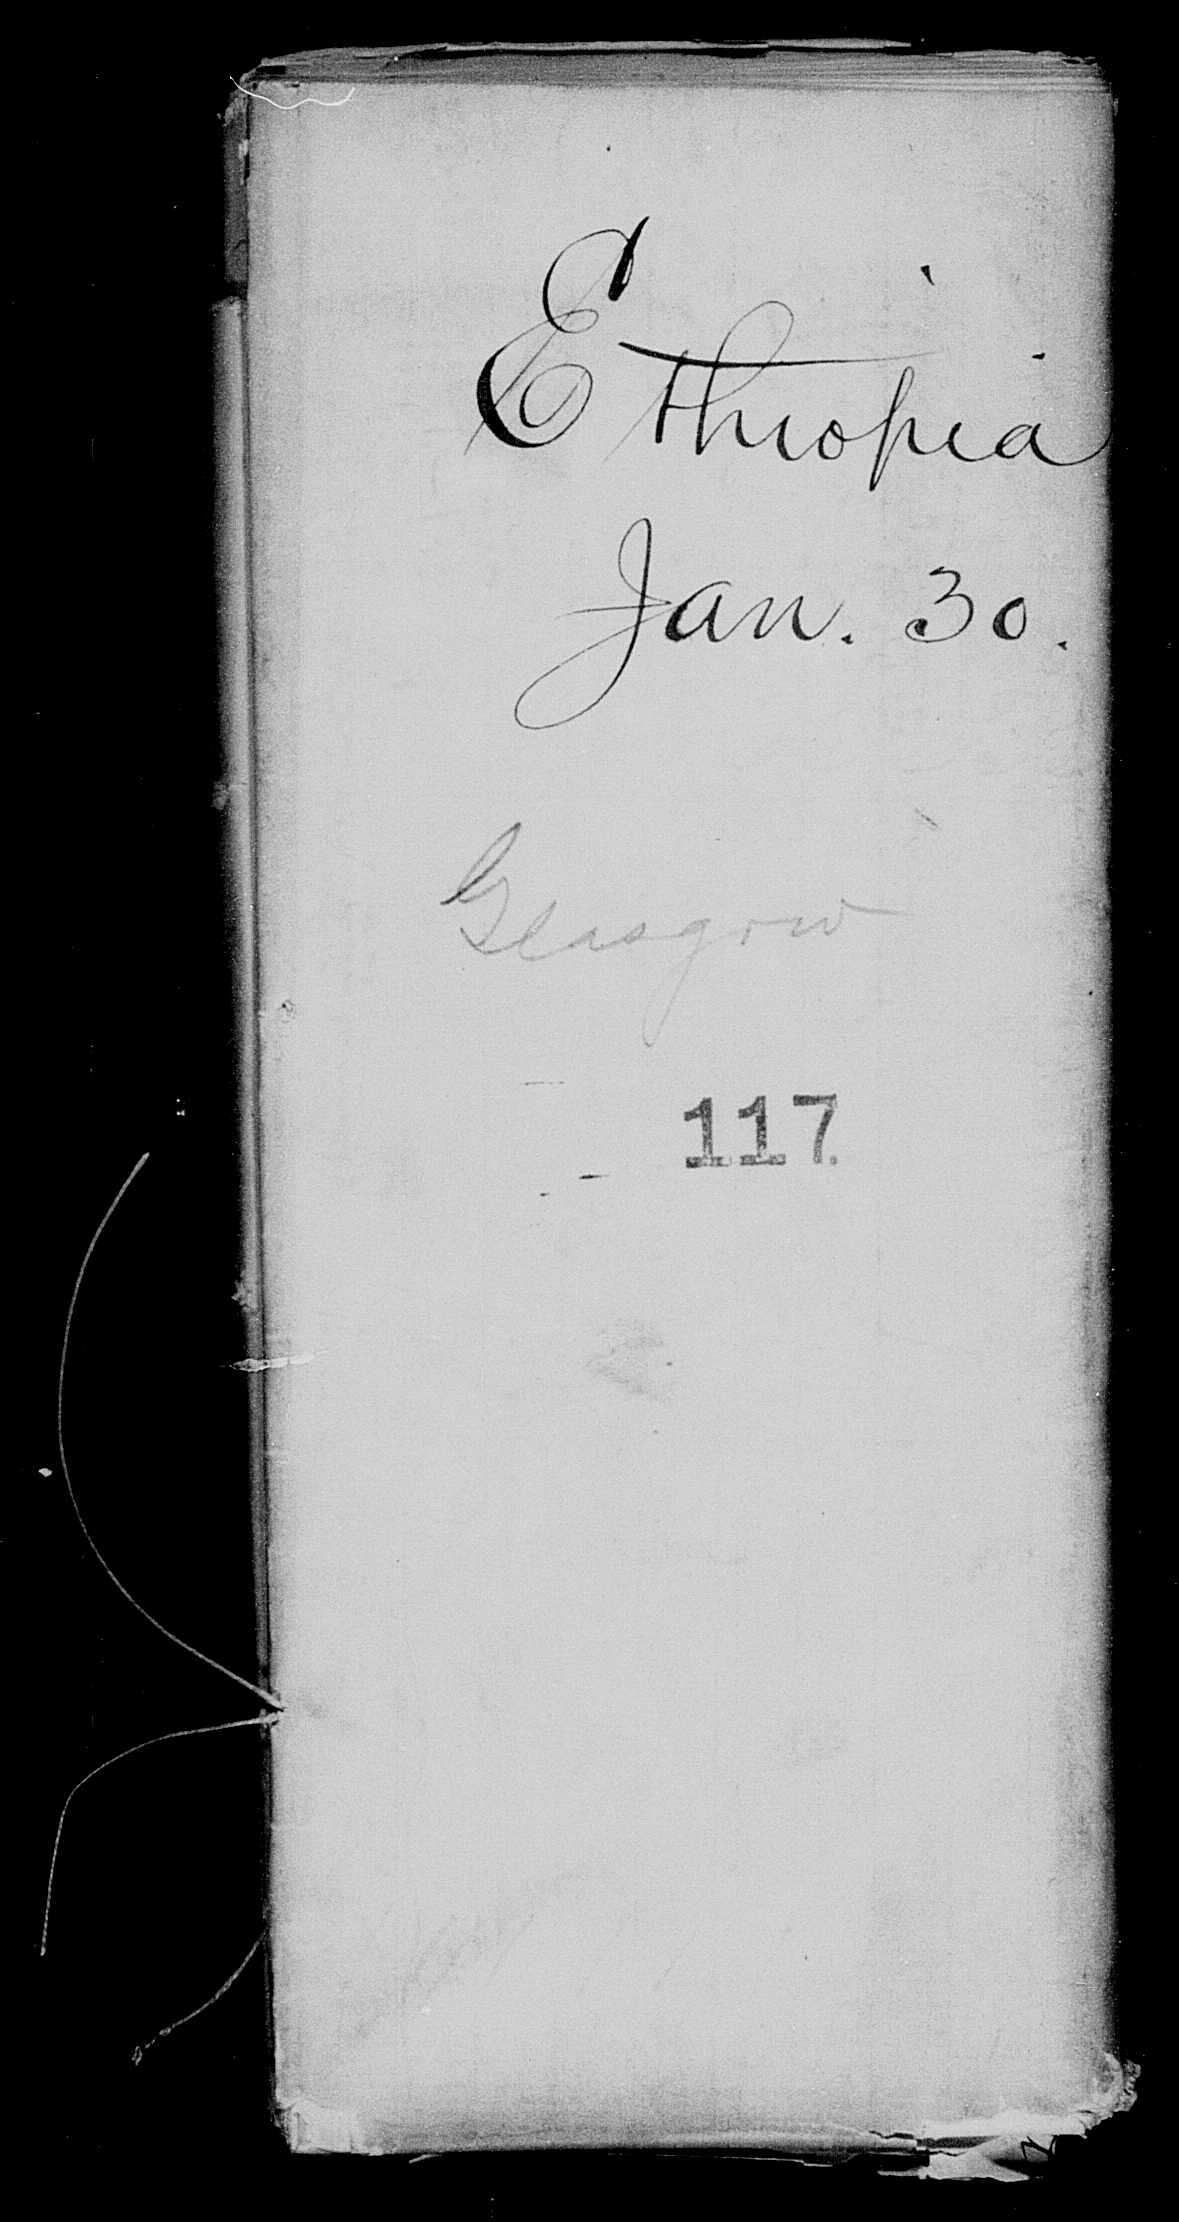 Ethiopia
Jan. 30.
Glasgow
117